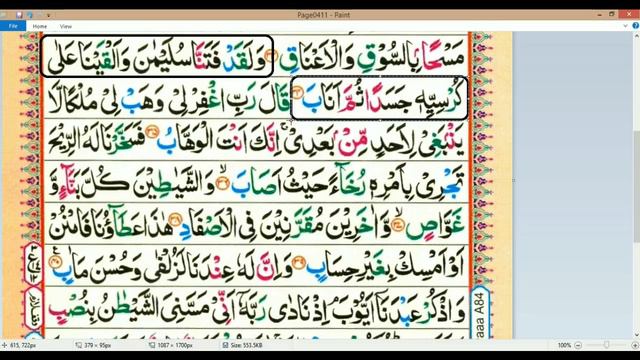 Page0411 - Paint
File Home View
مَسْحًۢا بِالسُّوْقِ وَالْاَعْنَاقِ ۝۳۳ وَلَقَدْ فَتَنَّا سُلَيْمٰنَ وَاَلْقَيْنَا عَلٰى
كُرْسِيِّهٖ جَسَدًا ثُمَّ اَنَابَ ۝۳۴ قَالَ رَبِّ اغْفِرْ لِيْ وَهَبْ لِيْ مُلْكًا لَّا
يَنْۢبَغِيْ لِاَحَدٍ مِّنْۢ بَعْدِيْ ۚ اِنَّكَ اَنْتَ الْوَهَّابُ ۝۳۵ فَسَخَّرْنَا لَهُ الرِّيْحَ
تَجْرِيْ بِاَمْرِهٖ رُخَآءً حَيْثُ اَصَابَ ۙ۝۳۶ وَالشَّيٰطِيْنَ كُلَّ بَنَّآءٍ وَّ
غَوَّاصٍ ۙ۝۳۷ وَّاٰخَرِيْنَ مُقَرَّنِيْنَ فِي الْاَصْفَادِ ۝۳۸ هٰذَا عَطَآؤُنَا فَامْنُنْ
اَوْ اَمْسِكْ بِغَيْرِ حِسَابٍ ۝۳۹ وَاِنَّ لَهٗ عِنْدَنَا لَزُلْفٰى وَحُسْنَ مَاٰبٍ ۝۴۰
وَاذْكُرْ عَبْدَنَآ اَيُّوْبَ ۘ اِذْ نَادٰى رَبَّهٗٓ اَنِّيْ مَسَّنِيَ الشَّيْطٰنُ بِنُصْبٍ
aaa A84
615, 722px 379 × 95px 1087 × 1700px Size: 553.5KB 100%